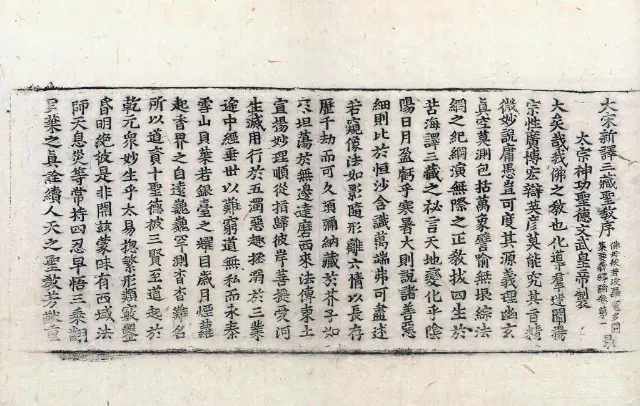 大宋新譯三藏聖教序
佛母般若波羅蜜多圓
集要義釋論卷第一
太宗神功聖德文武皇帝製
大矣哉我佛之教也化導羣迷闡揚
宗性廣博宏辯英彥莫能究其旨精
微妙說庸愚豈可度其源義理幽玄
真空莫測包括萬象譬喻無垠綜法
網之紀綱演無際之正教拔四生於
苦海譯三藏之祕言天地變化乎陰
陽日月盈虧乎寒暑大則說諸善惡
細則比於恒沙含識萬端弗可盡述
若窺像法如影隨形離六情以長存
歷千劫而可久須彌納藏於芥子如
來坦蕩於無邊達磨西來法傳東土
宣揚妙理順從指歸彼岸菩提愛河
生滅用行於五濁惡趣拯溺於三業
途中經垂世以難窮道無私而永泰
雪山貝葉若銀臺之耀目歲月煙蘿
起香界之自遠巍巍罕測杳杳難名
所以道資十聖德被三賢至道起於
乾元眾妙生乎太易揔繁形類竅鑿
昏明絕彼是非開該蒙昧有西域法
師天息災等常持四忍早悟三乘翻
貝葉之真詮續人天之聖教芳猷重